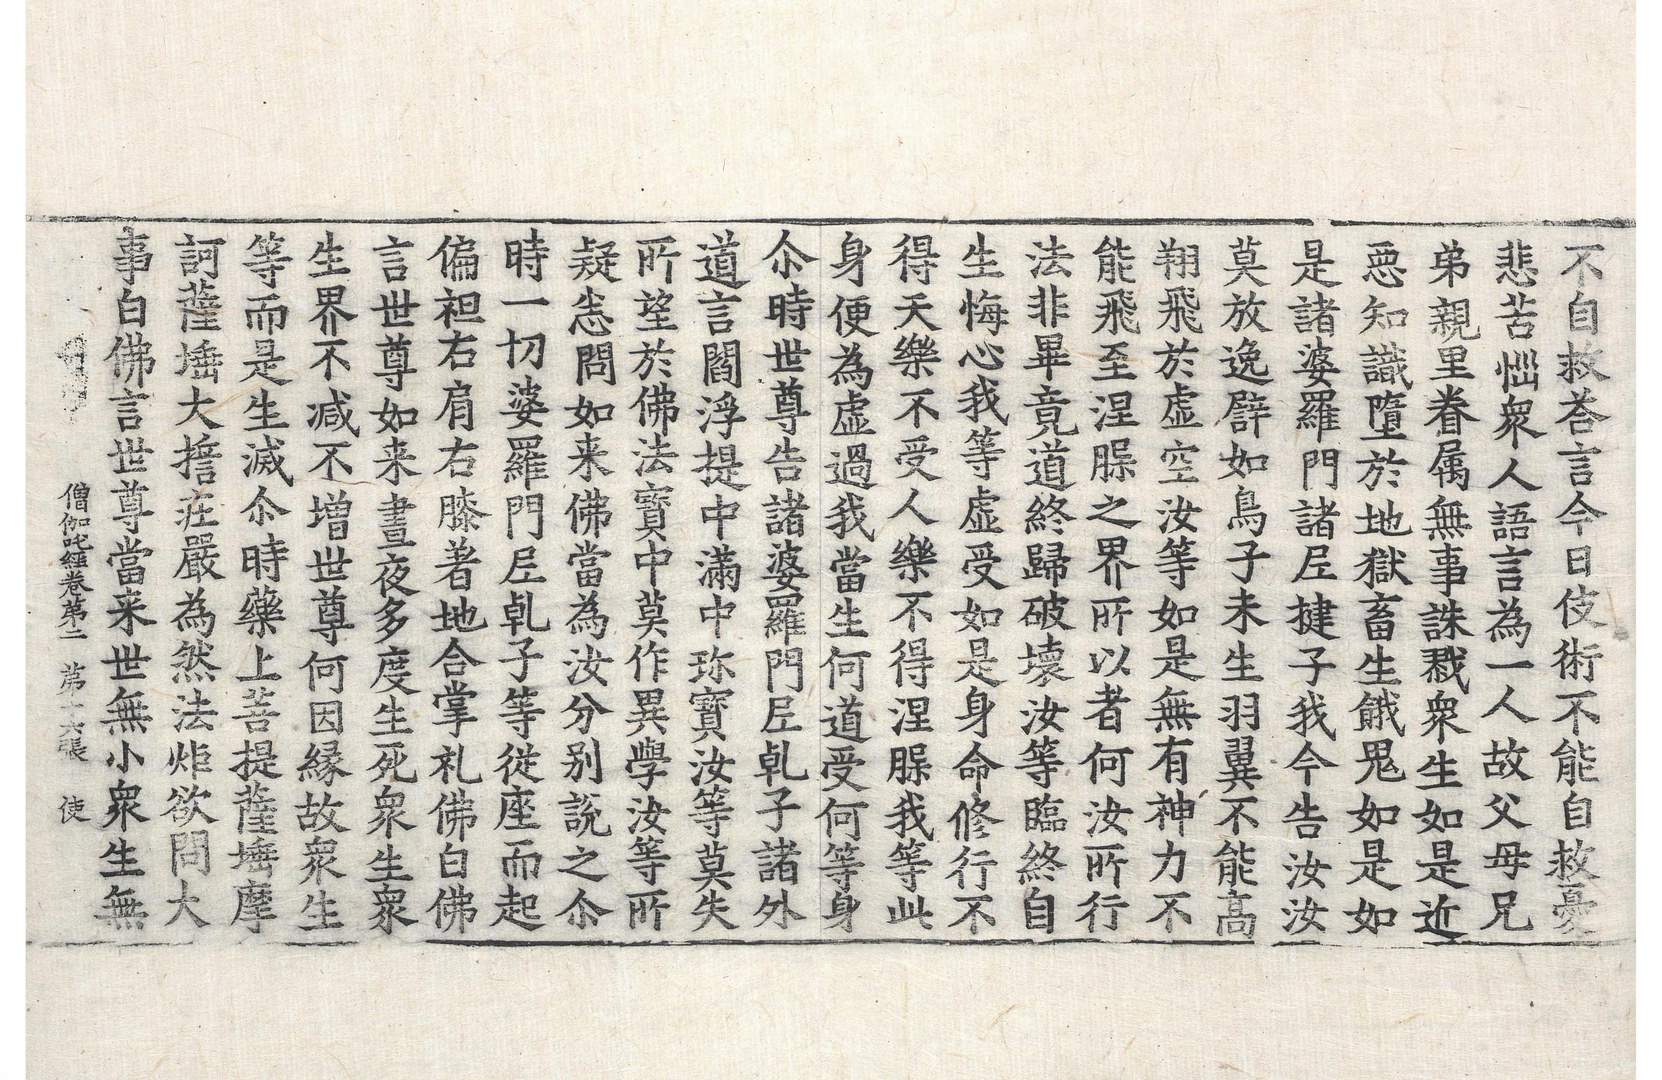 不自救荅言今日伎術不能自救憂
悲苦惱衆人語言為一人故父母兄
弟親里眷属無事誅戮衆生如是近
惡知識墮於地獄畜生餓鬼如是如
是諸婆羅門諸𡰱揵子我今告汝汝
莫放逸辟如鳥子未生羽翼不能高
翔飛於虛空汝等如是無有神力不
能飛至涅槃之界所以者何汝所行
法非畢竟道終歸破壞汝等臨終自
生悔心我等虛受如是身命修行不
得天樂不受人樂不得涅槃我等此
身便為虛過我當生何道受何等身
尒時世尊告諸婆羅門𡰱乹子諸外
道言閻浮提中滿中珎寶汝等莫失
所望於佛法寶中莫作異學汝等所
疑悉問如来佛當為汝分別說之尒
時一切婆羅門𡰱乹子等従座而起
偏袒右肩右膝著地合掌礼佛白佛
言世尊如来晝夜多度生死衆生衆
生界不減不增世尊何因緣故衆生
等而是生滅尒時藥上菩提薩埵摩
訶薩埵大擔疰嚴為然法炬欲問大
事白佛言世尊當来世無小衆生無
僧伽吒經卷第二 第十六張 使